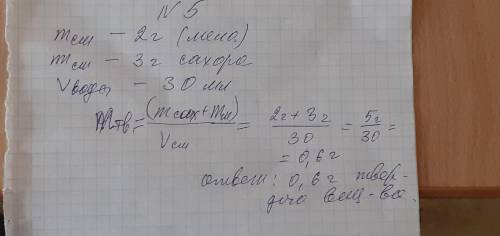 N 5
mсм – 2г (мела)
mсм – 3г сахара
Vводы – 30 мл
mтв = (mсах + mм) / Vсм = 2г + 3г / 30 = 5г / 30 =
= 0,6 г
ответ: 0,6 г твер-
дого вещ-ва.